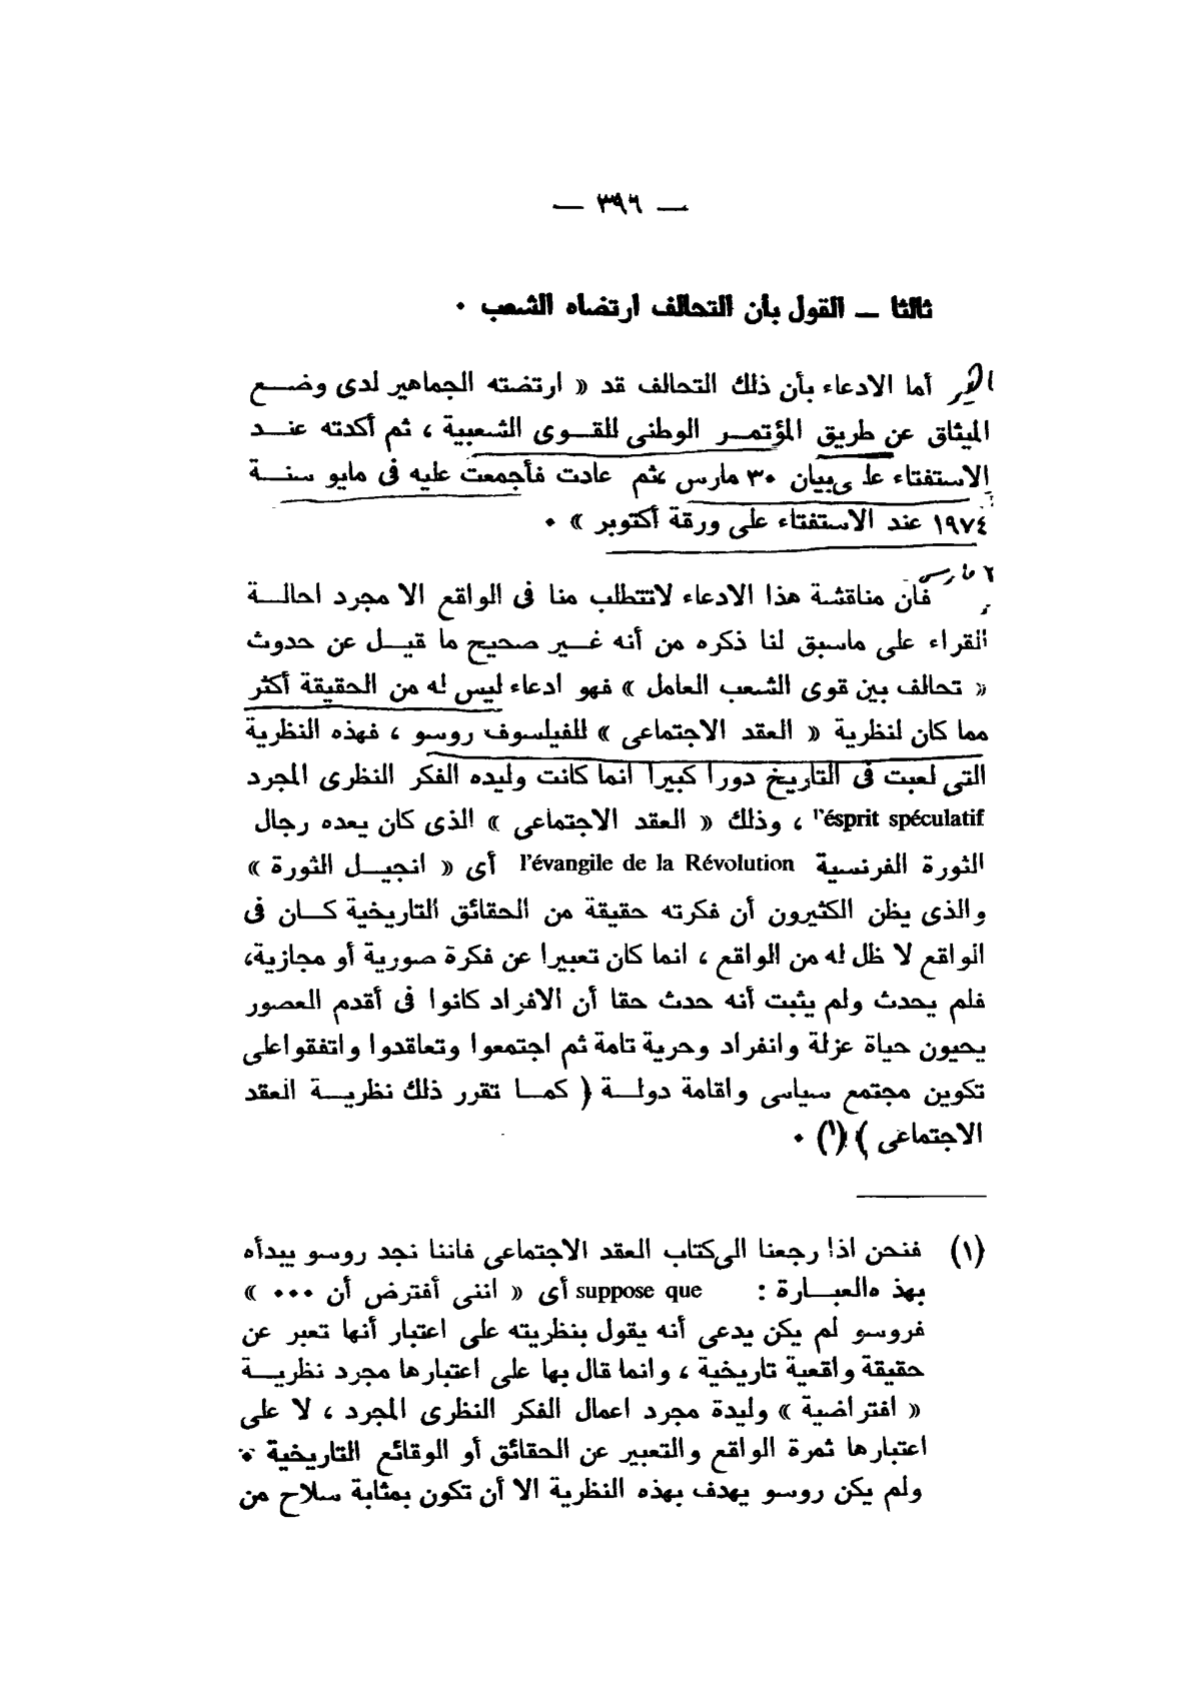 — ٣٩٦ —
ثالثا — القول بأن التحالف ارتضاه الشعب ٠
أما الادعاء بأن ذلك التحالف قد « ارتضته الجماهير لدى وضـــع
الميثاق عن طريق المؤتمـر الوطنى للقـوى الشعبية ، ثم أكدته عنـــد
الاستفتاء على بيان ٣٠ مارس ، ثم عادت فأجمعت عليه فى مايو سنـــة
١٩٧٤ عند الاستفتاء على ورقة أكتوبر » ٠
٢ مارس
فان مناقشة هذا الادعاء لاتتطلب منا فى الواقع الا مجرد احالـــة
القراء على ماسبق لنا ذكره من أنه غـــير صحيح ما قيـــل عن حدوث
« تحالف بين قوى الشعب العامل » فهو ادعاء ليس له من الحقيقة أكثر
مما كان لنظرية « العقد الاجتماعى » للفيلسوف روسو ، فهذه النظرية
التى لعبت فى التاريخ دورا كبيرا انما كانت وليده الفكر النظرى المجرد
l'ésprit spéculatif ، وذلك « العقد الاجتماعى » الذى كان يعده رجال
الثورة الفرنسية l'évangile de la Révolution أى « انجيـــل الثورة »
والذى يظن الكثيرون أن فكرته حقيقة من الحقائق التاريخية كـــان فى
الواقع لا ظل له من الواقع ، انما كان تعبيرا عن فكرة صورية أو مجازية،
فلم يحدث ولم يثبت أنه حدث حقا أن الافراد كانوا فى أقدم العصور
يحيون حياة عزلة وانفراد وحرية تامة ثم اجتمعوا وتعاقدوا واتفقواعلى
تكوين مجتمع سياسى واقامة دولـــة ( كمـــا تقرر ذلك نظريـــة العقد
الاجتماعى ) (١) ٠
(١) فنحن اذا رجعنا الى كتاب العقد الاجتماعى فاننا نجد روسو يبدأه
بهذ هالعبـــارة : suppose que أى « اننى أفترض أن ٠٠٠ »
فروسو لم يكن يدعى أنه يقول بنظريته على اعتبار أنها تعبر عن
حقيقة واقعية تاريخية ، وانما قال بها على اعتبارها مجرد نظريـــة
« افتراضية » وليدة مجرد اعمال الفكر النظرى المجرد ، لا على
اعتبارها ثمرة الواقع والتعبير عن الحقائق أو الوقائع التاريخية ٠
ولم يكن روسو يهدف بهذه النظرية الا أن تكون بمثابة سلاح من